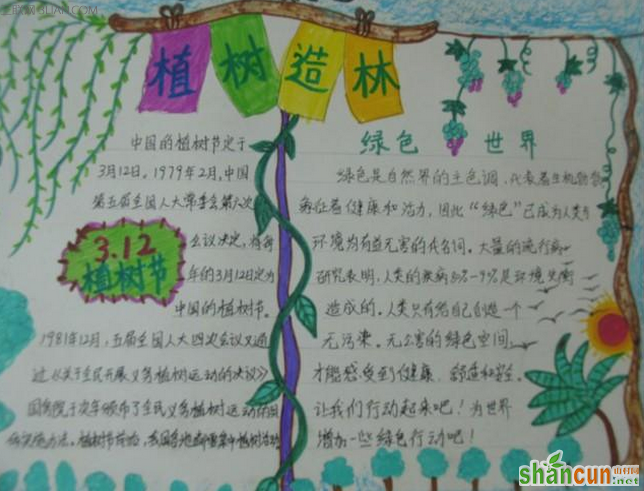 植树造林
中国的植树节定于
3月12日。1979年2月,中国
第五届全国人大常委会第六次
会议决定,将每
年的3月12日定为
中国的植树节。
3.12
植树节
1981年12月,五届全国人大四次会议又通
过《关于全民开展义务植树运动的决议》
国务院于次年颁布了全民义务植树运动的
实施办法。植树节前后,我国各地都要集中植树
绿色世界
绿色是自然界的主色调,代表着生机勃勃
象征着健康和活力,因此"绿色"已成为人类与
环境均有益无害的代名词。大量的流行病
研究表明,人类的疾病 是环境失衡
造成的。人类只有给自己创造一个
无污染。无公害的绿色空间,
才能感受到健康、舒适和安全。
让我们行动起来吧!为世界
增加一些绿色行动吧!
shancun
山村网
.net